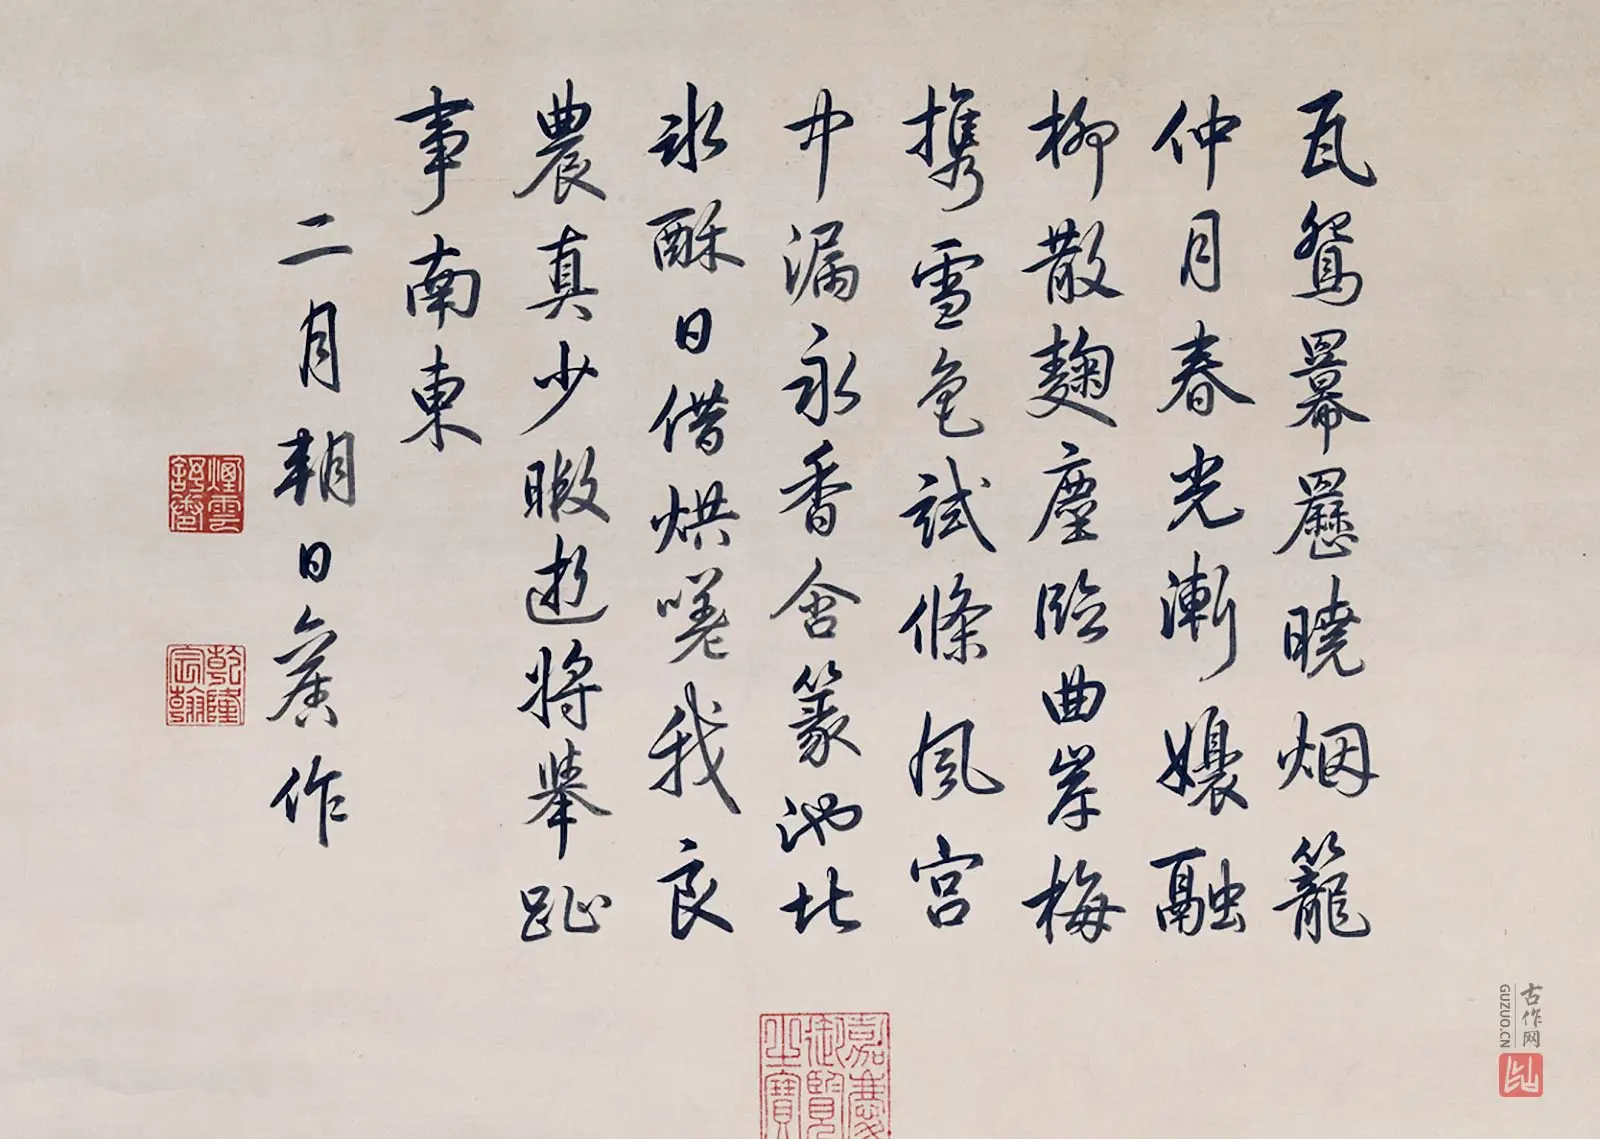 瓦鴛羃䍥曉烟籠
仲月春光漸孃融
柳散麴塵臨曲岸梅
携雪色試條風宮
中漏永香含篆池北
冰酥日借烘嗟我良
農真少暇遊將舉趾
事南東
二月朝日舊作
乾隆宸翰
嘉慶御覽之寶
古作网
GUZUO.CN